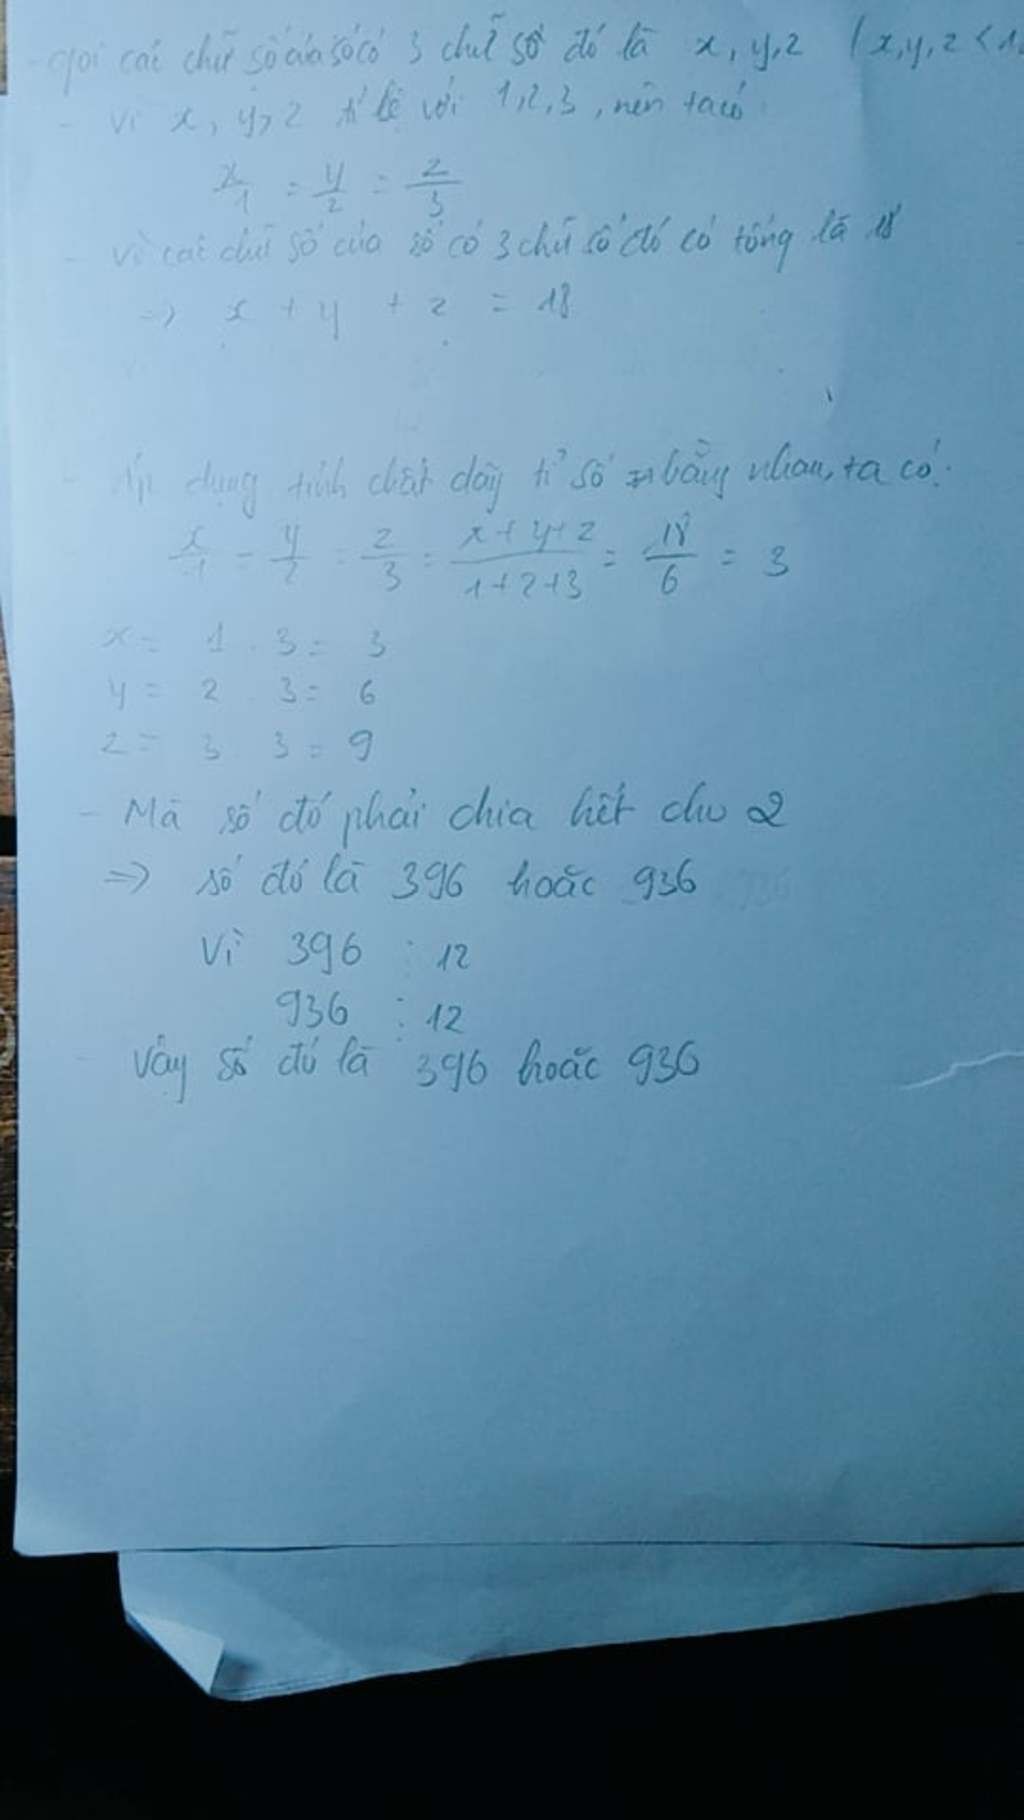 - gọi các chữ số của số có 3 chữ số đó là x, y, z (x, y, z < 1
- Vì x, y, z tỉ lệ với 1, 2, 3, nên ta có
x/1 = y/2 = z/3
- Vì các chữ số của số có 3 chữ số đó có tổng là 18
=> x + y + z = 18
- Áp dụng tính chất dãy tỉ số bằng nhau, ta có:
x/1 = y/2 = z/3 = x+y+z/1+2+3 = 18/6 = 3
x = 1 . 3 = 3
y = 2 . 3 = 6
z = 3 . 3 = 9
- Mà số đó phải chia hết cho 2
=> số đó là 396 hoặc 936
Vì 396 ⋮ 12
936 ⋮ 12
- Vậy số đó là 396 hoặc 936